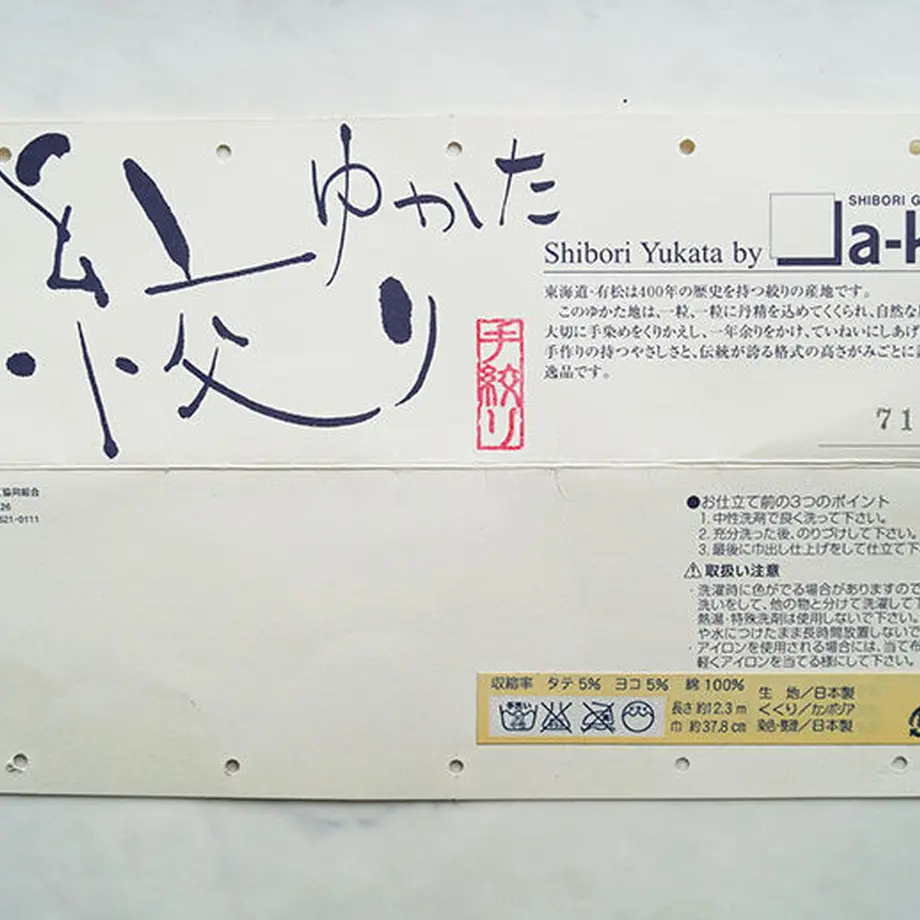 紅
絞り
ゆかた
手絞り
Shibori Yukata by
SHIBORI G
a-k
東海道・有松は400年の歴史を持つ絞りの産地です。
このゆかた地は、一粒、一粒に丹精を込めてくくられ、自然な
大切に手染めをくりかえし、一年余りをかけ、ていねいにしあげ
手作りの持つやさしさと、伝統が誇る格式の高さがみごとに
逸品です。
71
協同組合
26
621-0111
●お仕立て前の3つのポイント
1. 中性洗剤で良く洗って下さい。
2. 充分洗った後、のりづけして下さい。
3. 最後に巾出し仕上げをして仕立て下
⚠取扱い注意
・洗濯時に色がでる場合がありますので
洗いをして、他の物と分けて洗濯して下
熱湯・特殊洗剤は使用しないで下さい。
や水につけたまま長時間放置しないで
・アイロンを使用される場合には、当て布
軽くアイロンを当てる様にして下さい。
収縮率 タテ5% ヨコ5% 綿100%
手洗い
長さ 約12.3m
巾 約37.8cm
生 地/日本製
くくり/カンボジア
染色・整理/日本製